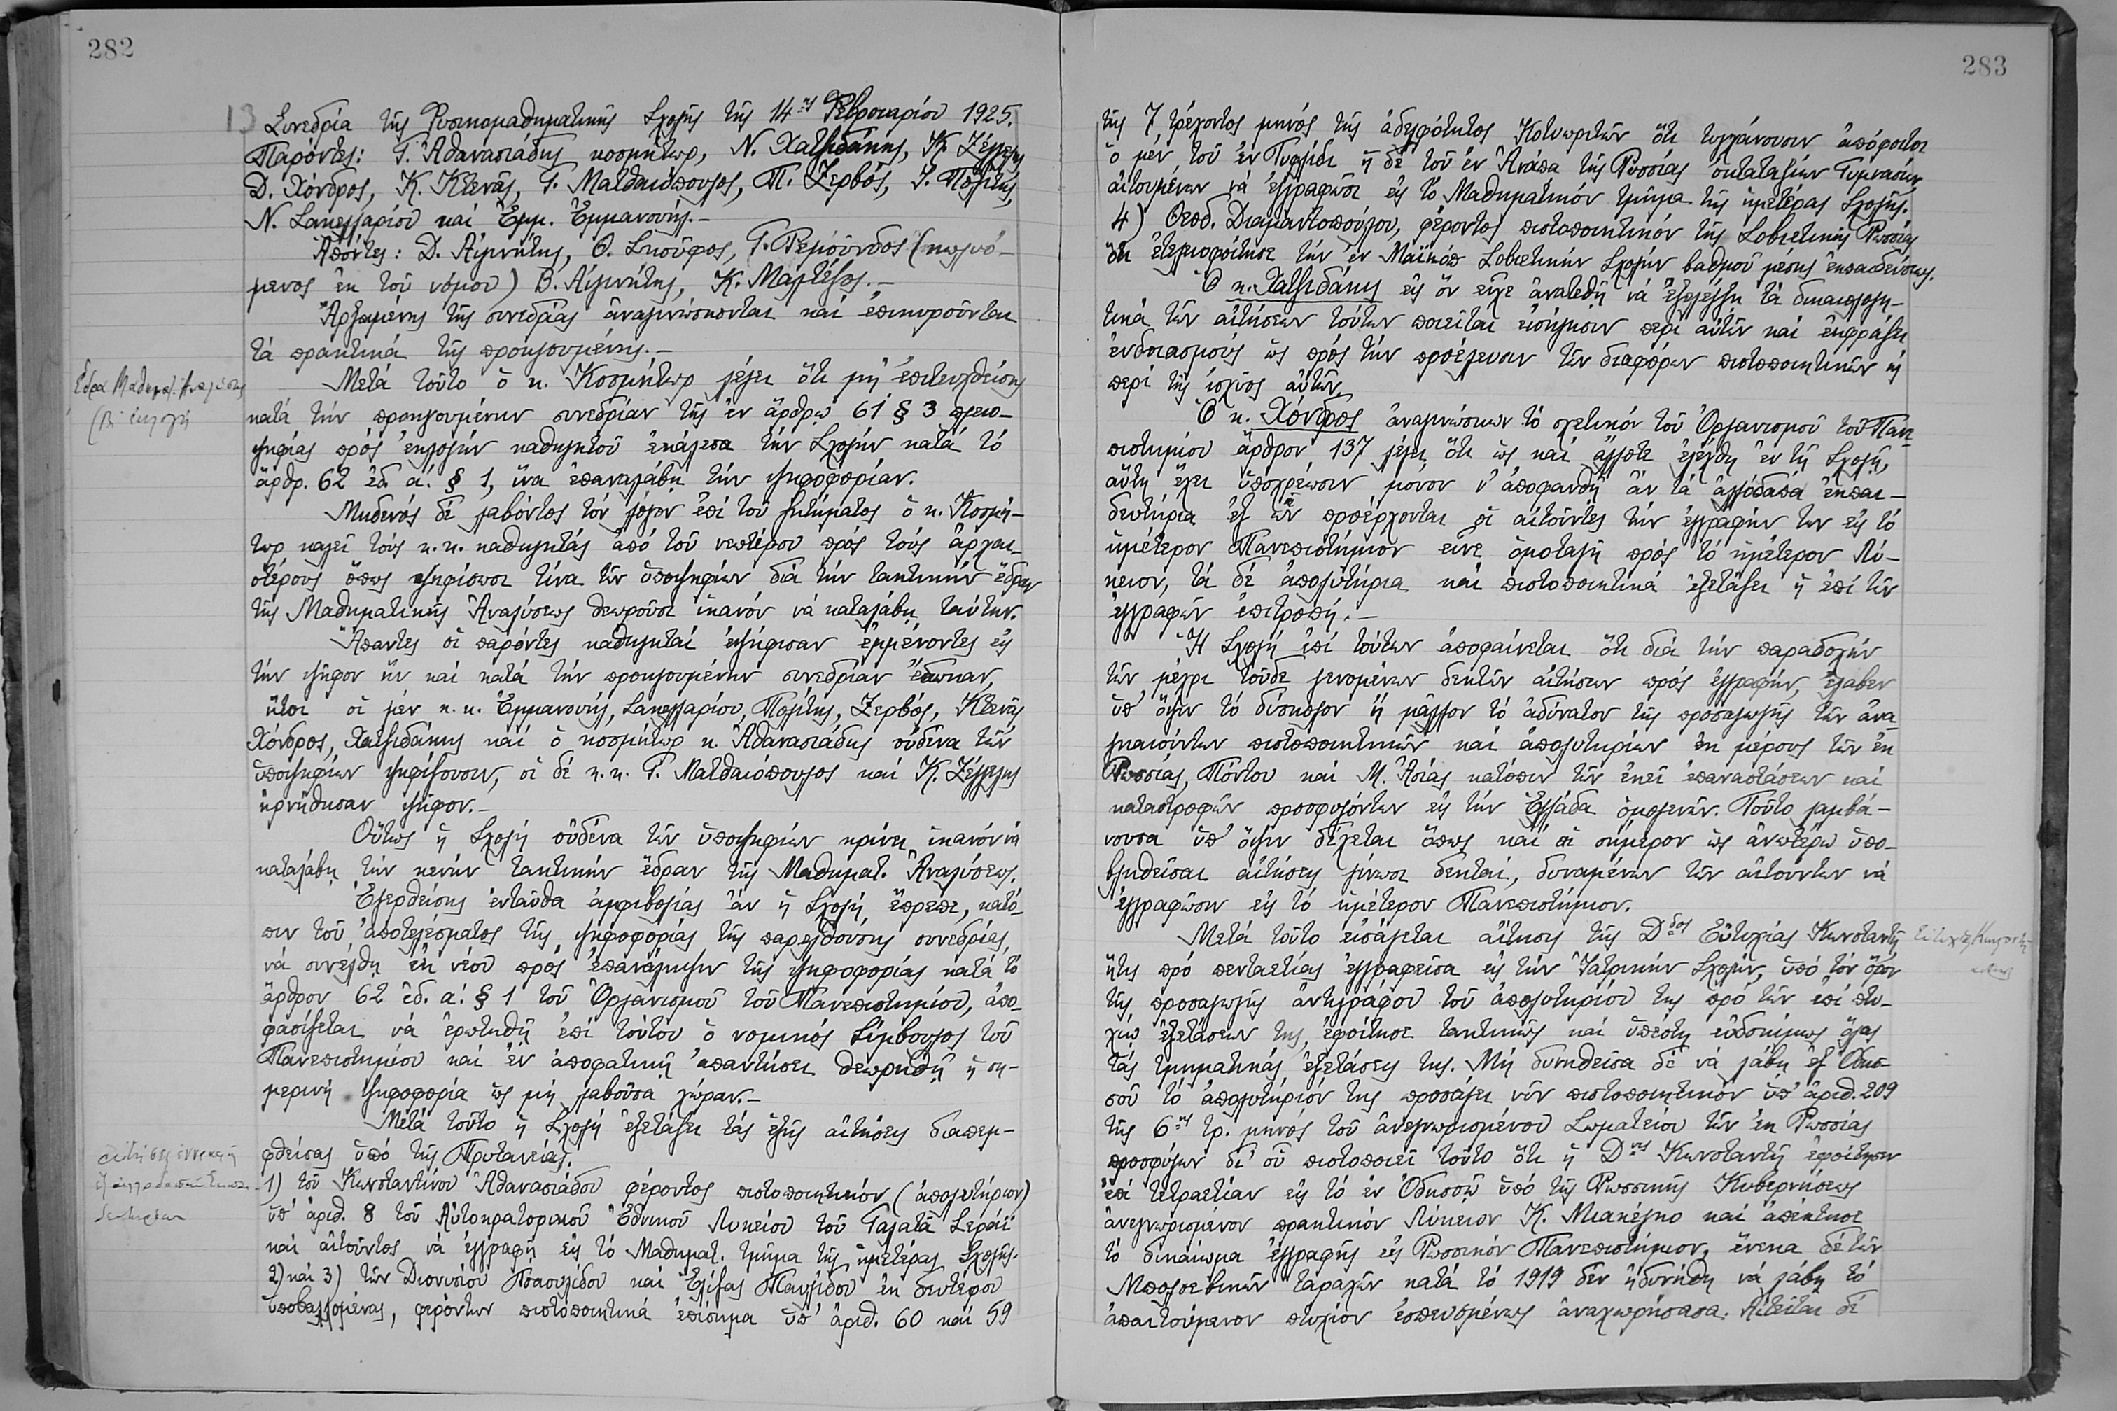 282
13 Συνεδρία τῆς Φυσικομαθηματικῆς Σχολῆς τῆς 14ης Φεβρουαρίου 1925.
Παρόντες: Γ. Ἀθανασιάδης κοσμήτωρ, Ν. Χατζιδάκης, Κ. Ζέγγελης
Δ. Χόνδρος, Κ. Κτενᾶς, Γ. Ματθαιόπουλος, Π. Ζερβός, Ι. Πολίτης,
Ν. Σακελλαρίου καὶ Ἐμμ. Ἐμμανουήλ.—
Ἀπόντες: Δ. Αἰγινήτης, Θ. Σκούφος, Γ. Ρεμοῦνδος (κωλυό-
μενος ἐκ τοῦ νόμου) Β. Αἰγινήτης, Κ. Μαλτέζος.—
Ἀρξαμένης τῆς συνεδρίας ἀναγινώσκονται καὶ ἐπικυροῦνται
τὰ πρακτικὰ τῆς προηγουμένης.—
Ἕδρα Μαθημ. Ἀναλύσεως
(Β' ἐκλογή
Μετὰ τοῦτο ὁ κ. Κοσμήτωρ λέγει ὅτι μὴ ἐπιτευχθείσης
κατὰ τὴν προηγουμένην συνεδρίαν τῆς ἐν ἄρθρῳ 61 § 3 πλειο-
ψηφίας πρὸς ἐκλογὴν καθηγητοῦ ἐκάλεσα τὴν Σχολὴν κατὰ τὸ
ἄρθρ. 62 ἐδ. α'. § 1, ἵνα ἐπαναλάβῃ τὴν ψηφοφορίαν.
Μηδενὸς δὲ λαβόντος τὸν λόγον ἐπὶ τοῦ ζητήματος ὁ κ. Κοσμή-
τωρ καλεῖ τοὺς κ.κ. καθηγητὰς ἀπὸ τοῦ νεωτέρου πρὸς τοὺς ἀρχαι-
οτέρους ὅπως ψηφίσωσι τίνα τῶν ὑποψηφίων διὰ τὴν τακτικὴν ἕδραν
τῆς Μαθηματικῆς Ἀναλύσεως θεωροῦσι ἱκανὸν νὰ καταλάβῃ ταύτην.
Ἅπαντες οἱ παρόντες καθηγηταὶ ἐψήφισαν ἐμμένοντες εἰς
τὴν ψῆφον ἣν καὶ κατὰ τὴν προηγουμένην συνεδρίαν ἔδωκαν,
ἤτοι οἱ μὲν κ.κ. Ἐμμανουήλ, Σακελλαρίου, Πολίτης, Ζερβός, Κτενᾶς
Χόνδρος, Χατζιδάκης καὶ ὁ κοσμήτωρ κ. Ἀθανασιάδης οὐδένα τῶν
ὑποψηφίων ψηφίζουσιν, οἱ δὲ κ.κ. Γ. Ματθαιόπουλος καὶ Κ. Ζέγγελης
ἠρνήθησαν ψῆφον.—
Οὕτως ἡ Σχολὴ οὐδένα τῶν ὑποψηφίων κρίνει ἱκανὸν νὰ
καταλάβῃ τὴν κενὴν τακτικὴν ἕδραν τῆς Μαθηματ. Ἀναλύσεως.
Ἐγερθείσης ἐνταῦθα ἀμφιβολίας ἂν ἡ Σχολὴ ἔπρεπε, κατό-
πιν τοῦ ἀποτελέσματος τῆς ψηφοφορίας τῆς παρελθούσης συνεδρίας,
νὰ συνέλθῃ ἐκ νέου πρὸς ἐπανάληψιν τῆς ψηφοφορίας κατὰ τὸ
ἄρθρον 62 ἐδ. α'. § 1 τοῦ Ὀργανισμοῦ τοῦ Πανεπιστημίου, ἀπο-
φασίζεται νὰ ἐρωτηθῇ ἐπὶ τούτου ὁ νομικὸς Σύμβουλος τοῦ
Πανεπιστημίου καὶ ἐν ἀποφατικῇ ἀπαντήσει θεωρηθῇ ἡ ση-
μερινὴ ψηφοφορία ὡς μὴ λαβοῦσα χώραν.—
Μετὰ τοῦτο ἡ Σχολὴ ἐξετάζει τὰς ἑξῆς αἰτήσεις διαπεμ-
φθείσας ὑπὸ τῆς Πρυτανείας.
1) τοῦ Κωνσταντίνου Ἀθανασιάδου φέροντος πιστοποιητικόν (ἀπολυτήριον)
ὑπ' ἀριθ. 8 τοῦ Αὐτοκρατορικοῦ Ὀθωμανικοῦ Λυκείου τοῦ Γαλατᾶ Σεράϊ
καὶ αἰτοῦντος νὰ ἐγγραφῇ εἰς τὸ Μαθηματ. τμῆμα τῆς ἡμετέρας Σχολῆς.
2) καὶ 3) τῶν Διονυσίου Πασαλίδου καὶ Ἐλίζας Παυλίδου ἐκ δευτέρου
ὑποβαλλομένας, φερόντων πιστοποιητικὰ ἐπίσημα ὑπ' ἀριθ. 60 καὶ 59
283
τῆς 7 τρέχοντος μηνὸς τῆς ἀδελφότητος Κοτυωριτῶν ὅτι τυγχάνουσιν ἀπόφοιτοι
ὁ μὲν τοῦ ἐν Τυφλίδι ἡ δὲ τοῦ ἐν Ἀνάπα τῆς Ρωσσίας ὀκταταξίων Γυμνασίων
αἰτουμένων νὰ ἐγγραφῶσι εἰς τὸ Μαθηματικὸν τμῆμα τῆς ἡμετέρας Σχολῆς.
4) Θεοδ. Διαμαντοπούλου, φέροντος πιστοποιητικὸν τῆς Σοβιετικῆς Ρωσσίας
ὅτι ἐτελειοφοίτησε τὴν ἐν Μαϊκὸπ Σοβιετικὴν Σχολὴν βαθμοῦ μέσης ἐκπαιδεύσεως.
Ὁ κ. Χατζιδάκης εἰς ὃν εἶχε ἀνατεθῆ νὰ ἐξελέγξῃ τὰ δικαιολογη-
τικὰ τῶν αἰτήσεων τούτων ποιεῖται εἰσήγησιν περὶ αὐτῶν καὶ ἐκφράζει
ἐνδοιασμοὺς ὡς πρὸς τὴν προέλευσιν τῶν διαφόρων πιστοποιητικῶν ἢ
περὶ τῆς ἰσχύος αὐτῶν.
Ὁ κ. Χόνδρος ἀναγινώσκων τὸ σχετικὸν τοῦ Ὀργανισμοῦ τοῦ Πανε-
πιστημίου ἄρθρον 137 λέγει ὅτι ὡς καὶ ἄλλοτε ἐλέχθη ἐν τῇ Σχολῇ,
αὕτη ἔχει ὑποχρέωσιν μόνον ν' ἀποφανθῇ ἂν τὰ ἀλλοδαπὰ ἐκπαι-
δευτήρια ἐξ ὧν προέρχονται οἱ αἰτοῦντες τὴν ἐγγραφήν των εἰς τὸ
ἡμέτερον Πανεπιστήμιον εἶνε ὁμοταγῆ πρὸς τὸ ἡμέτερον Λύ-
κειον, τὰ δὲ ἀπολυτήρια καὶ πιστοποιητικὰ ἐξετάζει ἡ ἐπὶ τῶν
ἐγγραφῶν ἐπιτροπή.—
Ἡ Σχολὴ ἐπὶ τούτων ἀποφαίνεται ὅτι διὰ τὴν παραδοχὴν
τῶν μέχρι τοῦδε γενομένων δεκτῶν αἰτήσεων πρὸς ἐγγραφήν, ἔλαβεν
ὑπ' ὄψιν τὸ δύσκολον ἢ μᾶλλον τὸ ἀδύνατον τῆς προσαγωγῆς τῶν ἀνα-
γκαιούντων πιστοποιητικῶν καὶ ἀπολυτηρίων ἐκ μέρους τῶν ἐκ
Ρωσσίας, Πόντου καὶ Μ. Ἀσίας κατόπιν τῶν ἐκεῖ ἐπαναστάσεων καὶ
καταστροφῶν προσφυγόντων εἰς τὴν Ἑλλάδα ὁμογενῶν. Τοῦτο λαμβά-
νουσα ὑπ' ὄψιν δέχεται ὅπως καὶ αἱ σήμερον ὡς ἀνωτέρω ὑπο-
βληθεῖσαι αἰτήσεις γίνωσι δεκταί, δυναμένων τῶν αἰτούντων νὰ
ἐγγραφῶσιν εἰς τὸ ἡμέτερον Πανεπιστήμιον.
Μετὰ τοῦτο εἰσάγεται αἴτησις τῆς Δδος Εὐτυχίας Κωνσταντῆ
ἥτις πρὸ πενταετίας ἐγγραφεῖσα εἰς τὴν Ἰατρικὴν Σχολήν, ὑπὸ τὸν ὅρον
τῆς προσαγωγῆς ἀντιγράφου τοῦ ἀπολυτηρίου της πρὸ τῶν ἐπὶ πτυ-
χίῳ ἐξετάσεων της, ἐφοίτησε τακτικῶς καὶ ὑπέστη εὐδοκίμως ὅλας
τὰς τμηματικὰς ἐξετάσεις της. Μὴ δυνηθεῖσα δὲ νὰ λάβῃ ἐξ Ὀδησ-
σοῦ τὸ ἀπολυτήριόν της προσάγει νῦν πιστοποιητικὸν ὑπ' ἀριθ. 209
τῆς 6ης τρ. μηνὸς τοῦ ἀνεγνωρισμένου Σωματείου τῶν ἐκ Ρωσσίας
προσφύγων δι' οὗ πιστοποιεῖ τοῦτο ὅτι ἡ Δνὶς Κωνσταντῆ ἐφοίτησεν
ἐπὶ τετραετίαν εἰς τὸ ἐν Ὀδησσῷ ὑπὸ τῆς Ρωσσικῆς Κυβερνήσεως
ἀνεγνωρισμένον πρακτικὸν Λύκειον Κ. Μιακέγκο καὶ ἀπέκτησε
τὸ δικαίωμα ἐγγραφῆς εἰς Ρωσσικὸν Πανεπιστήμιον, ἕνεκα δὲ τῶν
Μπολσεβικικῶν ταραχῶν κατὰ τὸ 1919 δὲν ἠδυνήθη νὰ λάβῃ τὸ
ἀπαιτούμενον πτυχίον ἐσπευσμένως ἀναχωρήσασα. Αἰτεῖται δὲ